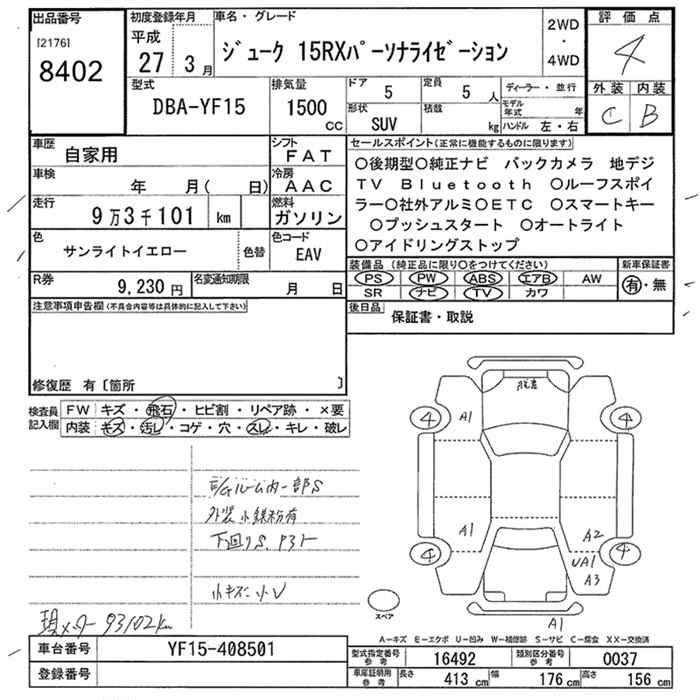 出品番号
[2176]
8402
初度登録年月
平成
27 3月
車名・グレード
ジューク 15RXパーソナライゼーション
2WD
・
4WD
評価点
4
外装 内装
C B
型式
DBA-YF15
排気量
1500
CC
ドア 5
定員 5 人
形状
SUV
積載 kg
ディーラー・並行
モデル年式 年
ハンドル 左・右
車歴 自家用
シフト
FAT
車検 年 月( 日)
冷房
AAC
走行 9万3千101 km
燃料
ガソリン
色 サンライトイエロー 色替
色コード
EAV
R券 9,230円
名変通知期限 月 日
セールスポイント(正常に機能するものに限ります)
○後期型○純正ナビ バックカメラ 地デジ
TV Bluetooth ○ルーフスポイ
ラー○社外アルミ○ETC ○スマートキー
○プッシュスタート ○オートライト
○アイドリングストップ
装備品(純正品に限り○をつけてください)
PS PW ABS エアB AW
SR ナビ TV カワ
新車保証書
有・無
後日品 保証書・取説
注意事項申告欄(不具合内容等は具体的に記入して下さい)
修復歴 有〔箇所 〕
検査員記入欄
FW キズ・飛石・ヒビ割・リペア跡・×要
内装 キズ・汚レ・コゲ・穴・スレ・キレ・破レ
E/Gルーム内一部S
外装小鉄粉有
下回りS、P3ト
小キズ・小U
現メーター93102km
A1
4
4
A1
4
4
A2
UA1
A3
A1
スペア
A－キズ E－エクボ U－凹み W－補修跡 S－サビ C－腐食 XX－交換済
車台番号 YF15-408501
登録番号
型式指定番号参考 16492
類別区分番号参考 0037
車庫証明用参考 長さ 413 cm 幅 176 cm 高さ 156 cm